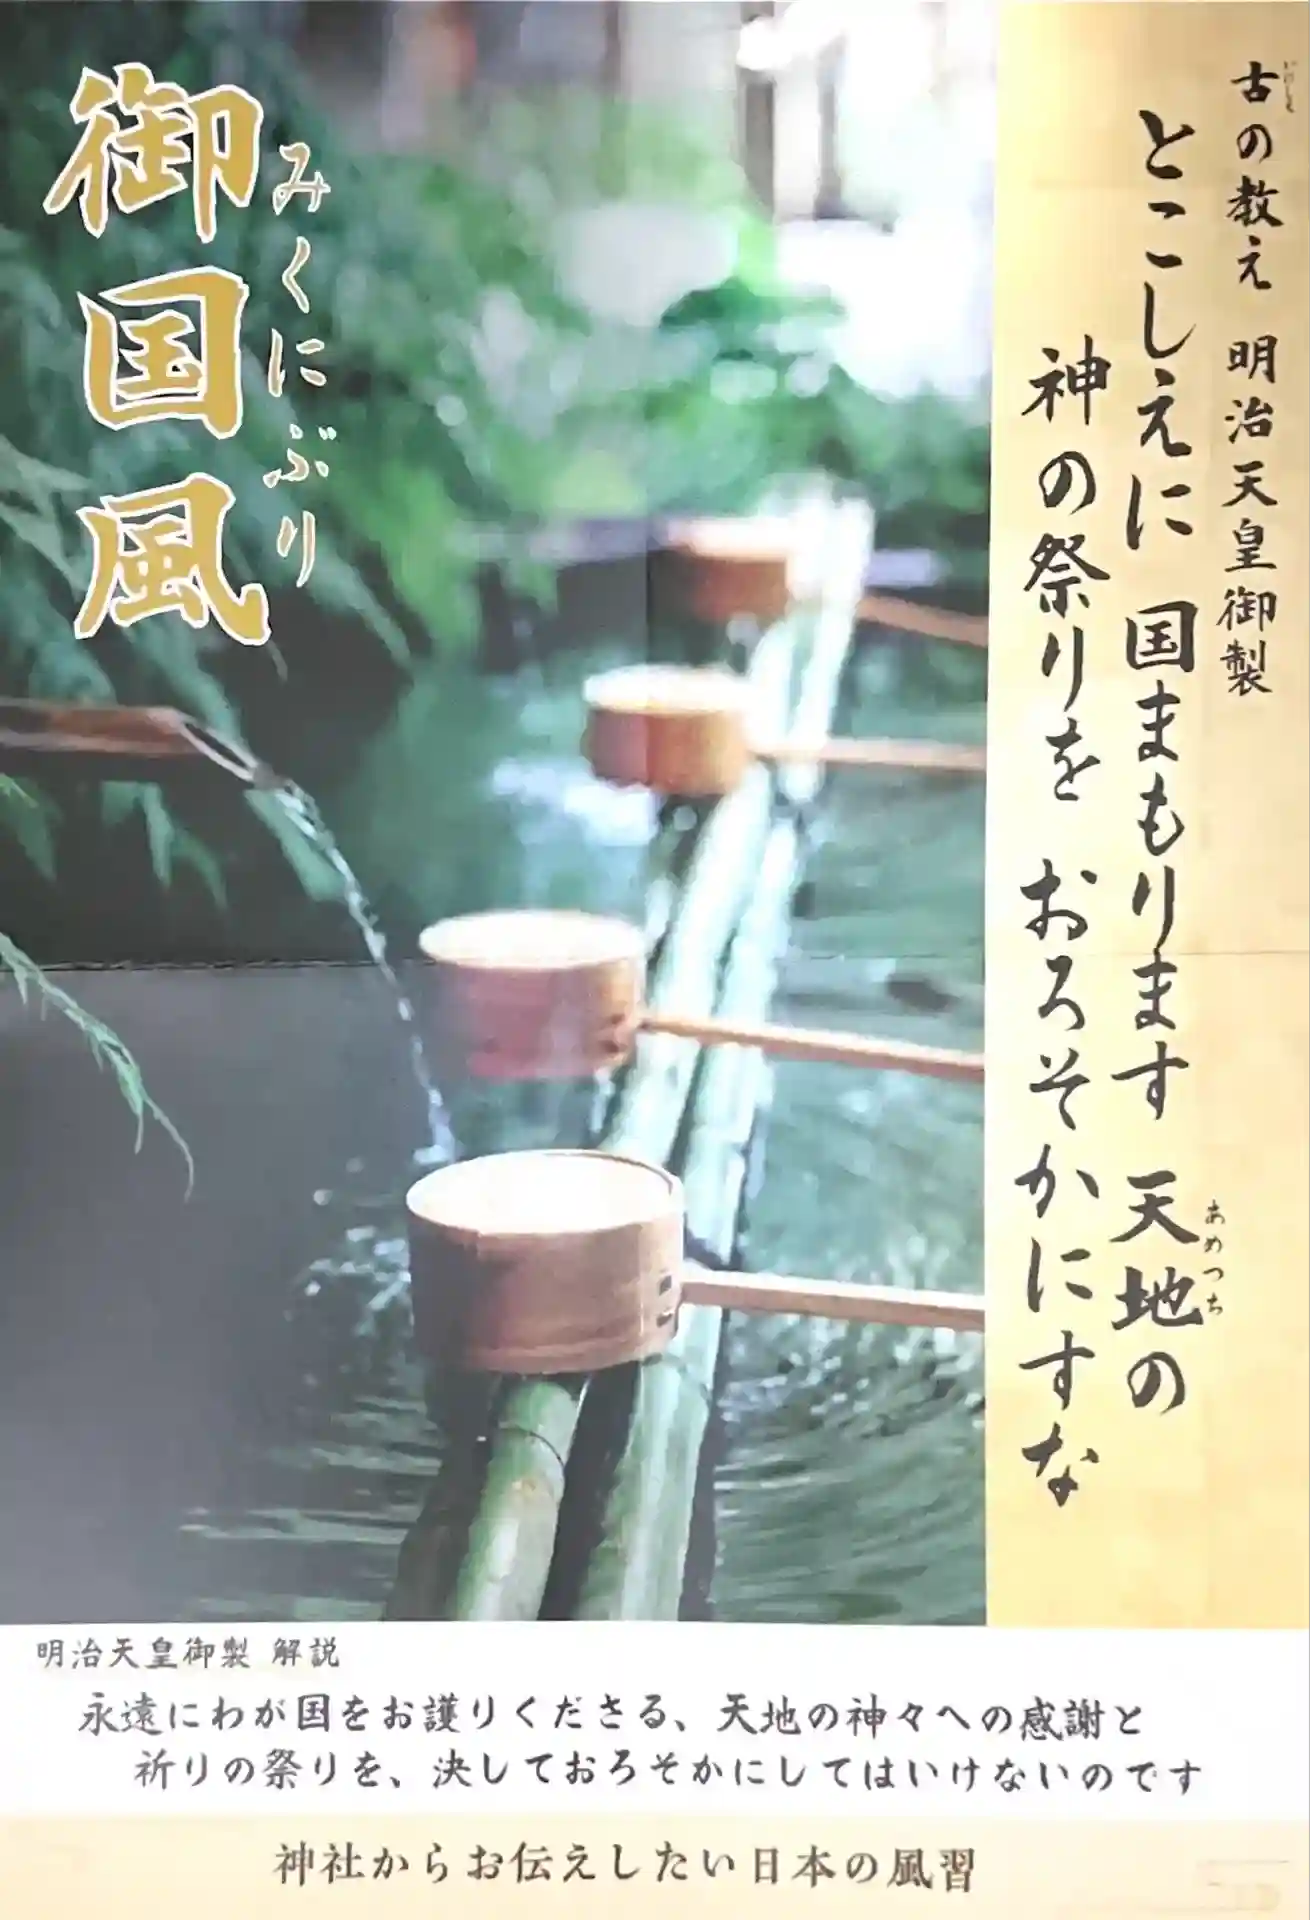 御国風
みくにぶり
古の教え 明治天皇御製
いにしえ
とこしえに 国まもります 天地の
あめつち
神の祭りを おろそかにすな
明治天皇御製 解説
永遠にわが国をお護りくださる、天地の神々への感謝と
祈りの祭りを、決しておろそかにしてはいけないのです
神社からお伝えしたい日本の風習